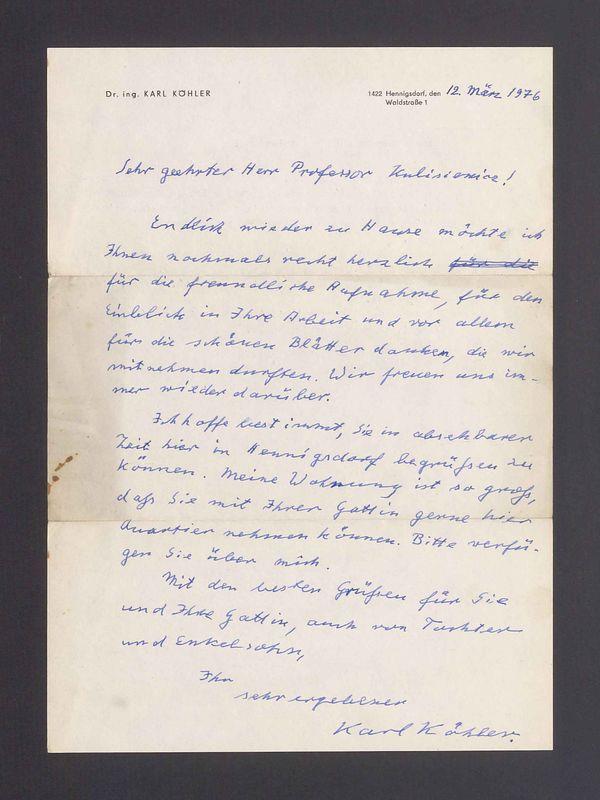 Dr. ing. KARL KÖHLER
1422 Hennigsdorf, den 12. März 1976
Waldstraße 1
Sehr geehrter Herr Professor Kulisiewicz!
Endlich wieder zu Hause möchte ich
Ihnen nochmals recht herzlich für die
für die freundliche Aufnahme, für den
Einblick in Ihre Arbeit und vor allem
für die schönen Blätter danken, die wir
mitnehmen durften. Wir freuen uns im-
mer wieder darüber.
Ich hoffe bestimmt, Sie in absehbarer
Zeit hier in Hennigsdorf begrüßen zu
können. Meine Wohnung ist so groß,
daß Sie mit Ihrer Gattin gerne hier
Quartier nehmen können. Bitte verfü-
gen Sie über mich.
Mit den besten Grüßen für Sie
und Ihre Gattin, auch von Tochter
und Enkelsohn,
Ihr
sehr ergebener
Karl Köhler.